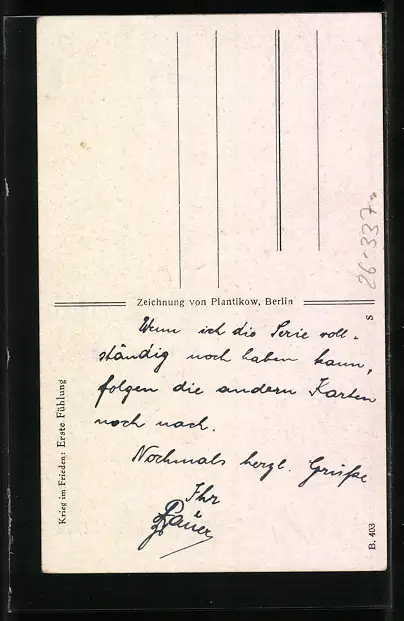 Zeichnung von Plantikow, Berlin
Wenn ich die Serie voll-
ständig noch haben kann,
folgen die andern Karten
noch nach.
Nochmals herzl. Grüße
Ihr
Bauer
Krieg im Frieden: Erste Fühlung
B. 403
S
26-337